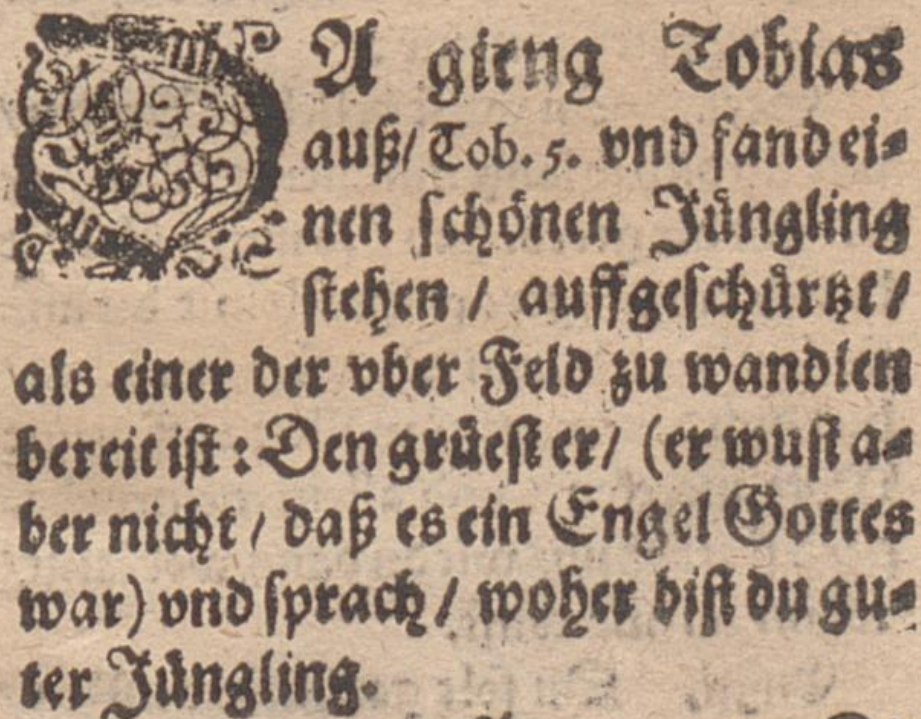 DA gieng Tobias
auß/ Tob. 5. vnd fand ei⸗
nen ſchoͤnen Juͤngling
ſtehen / auffgeſchuͤrtzt /
als einer der vber Feld zu wandlen
bereit iſt: Den gruͤeſt er/ (er wuſt a⸗
ber nicht / daß es ein Engel Gottes
war) vnd ſprach / woher biſt du gu⸗
ter Juͤngling.